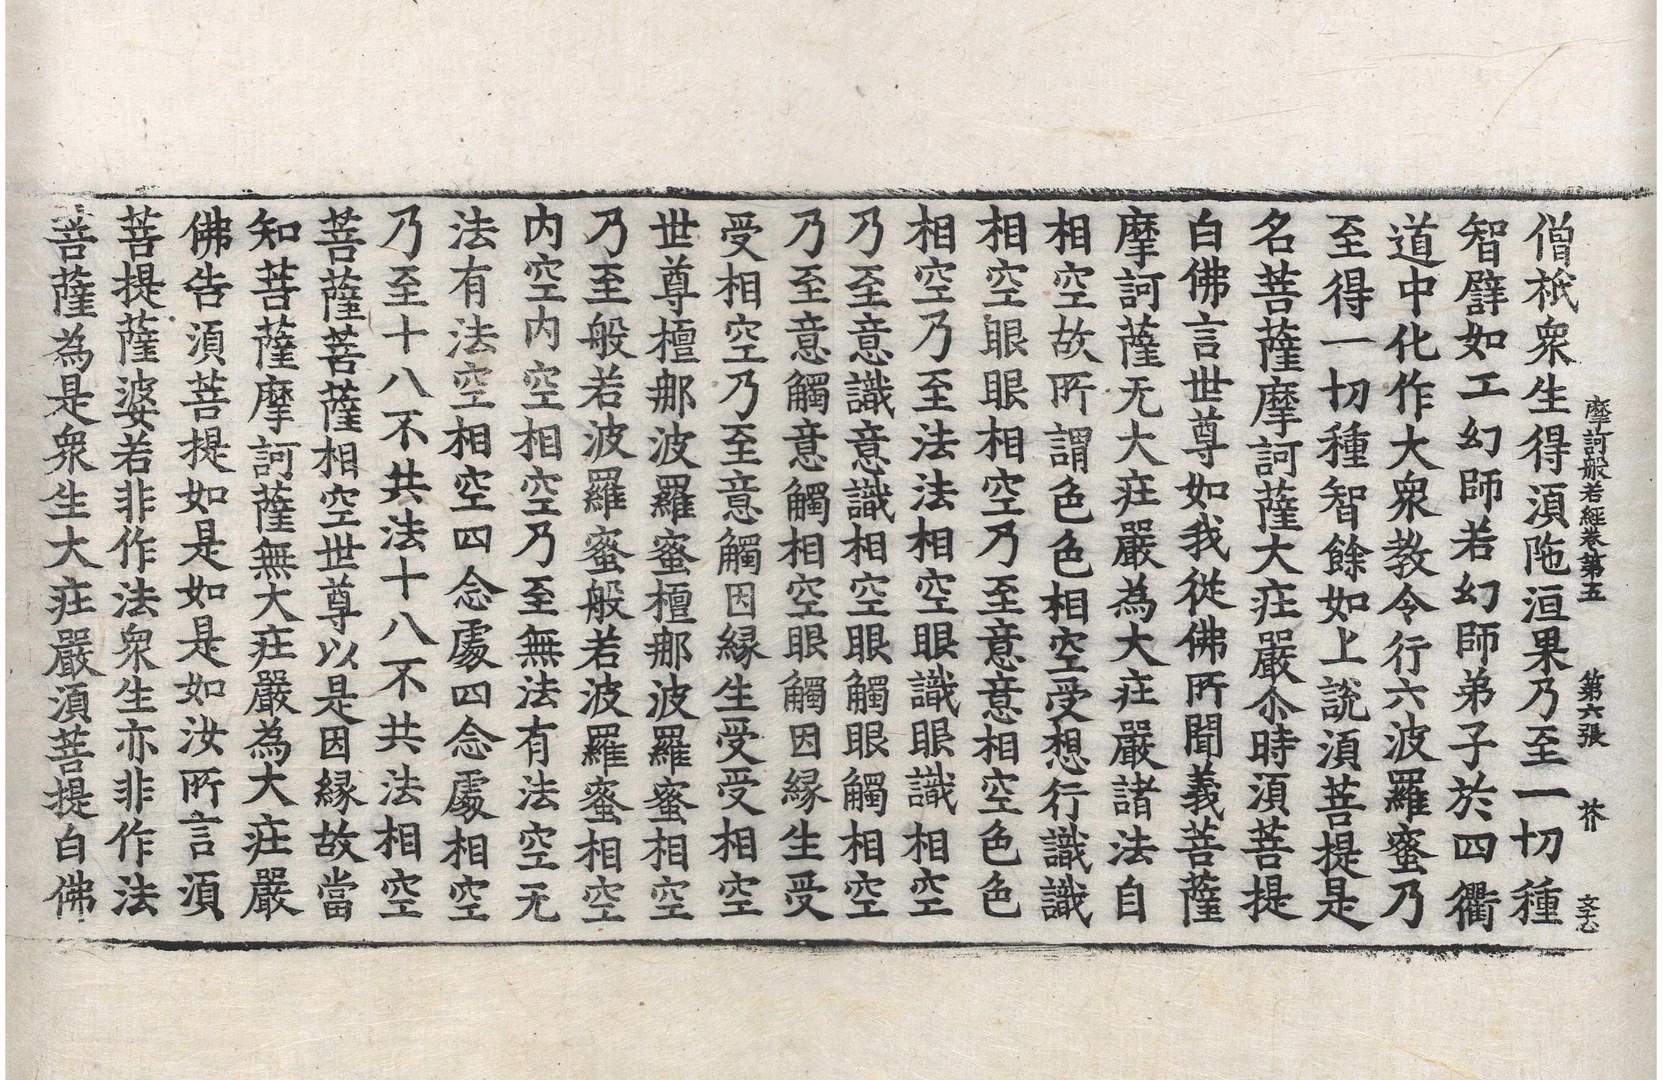 摩訶般若經卷第五 第六張 芥 文心
僧祇衆生得湏陁洹果乃至一切種
智譬如工幻師若幻師弟子於四衢
道中化作大衆教令行六波羅蜜乃
至得一切種智餘如上說湏菩提是
名菩薩摩訶薩大莊嚴尒時湏菩提
白佛言世尊如我從佛所聞義菩薩
摩訶薩无大莊嚴為大莊嚴諸法自
相空故所謂色色相空受想行識識
相空眼眼相空乃至意意相空色色
相空乃至法法相空眼識眼識相空
乃至意識意識相空眼觸眼觸相空
乃至意觸意觸相空眼觸因緣生受
受相空乃至意觸因緣生受受相空
世尊檀那波羅蜜檀那波羅蜜相空
乃至般若波羅蜜般若波羅蜜相空
内空内空相空乃至無法有法空无
法有法空相空四念處四念處相空
乃至十八不共法十八不共法相空
菩薩菩薩相空世尊以是因緣故當
知菩薩摩訶薩無大莊嚴為大莊嚴
佛告湏菩提如是如是如汝所言湏
菩提薩婆若非作法衆生亦非作法
菩薩為是衆生大莊嚴湏菩提白佛